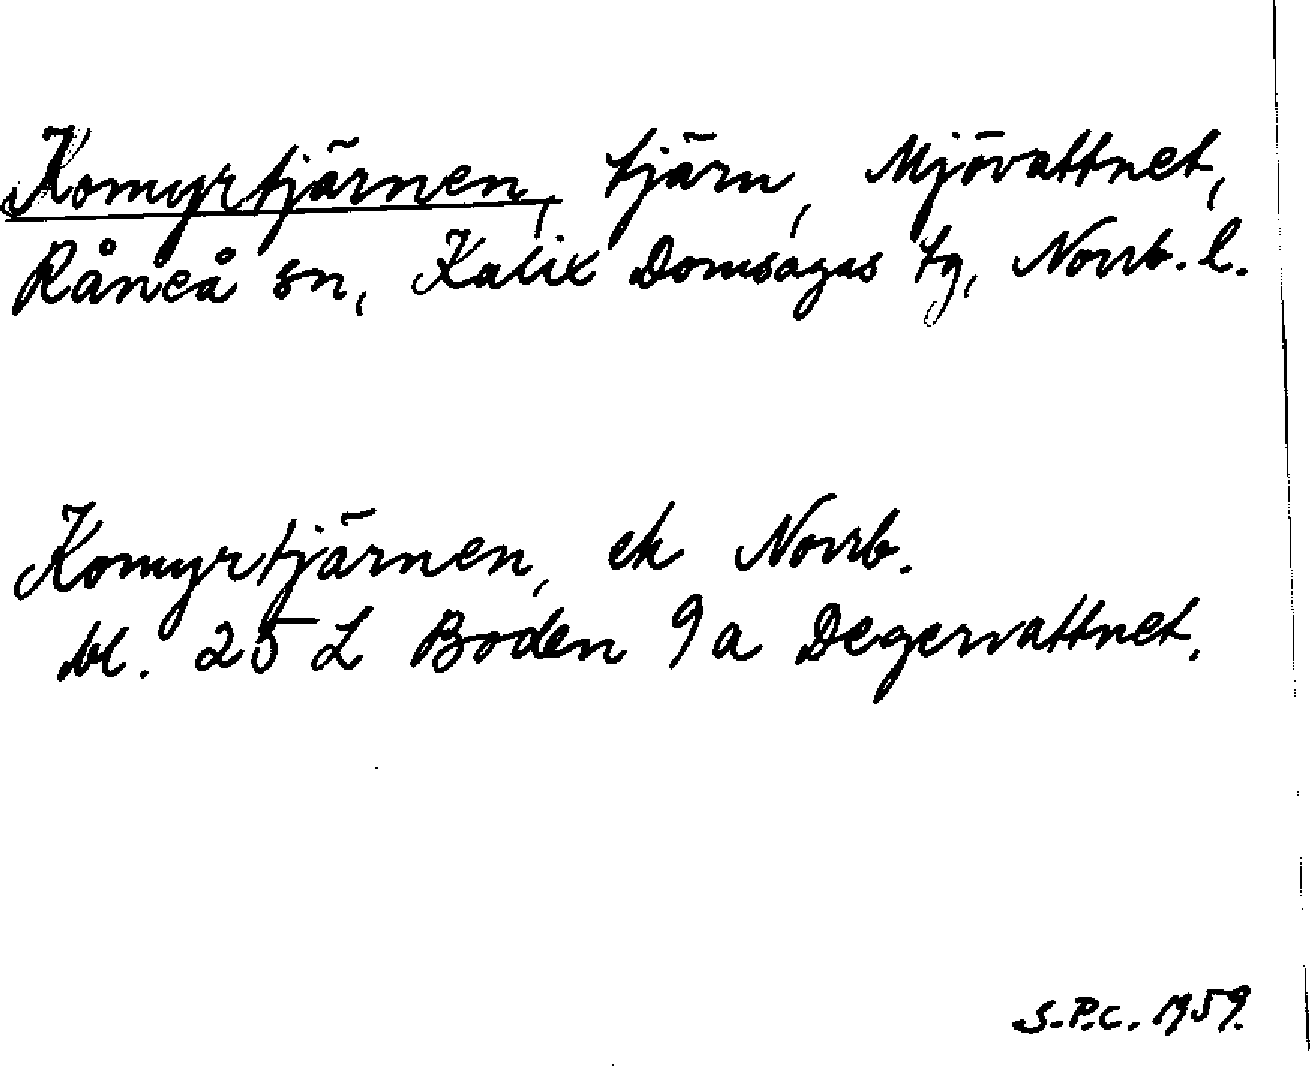 Komyrtjärnen, tjärn, Mjövattnet,
Råneå sn, Kalix Domsagas tg, Norrb. l.
Komyrtjärnen, ek Norrb.
bl. 25 L Boden 9 a Degervattnet.
S.P.C. 1959.